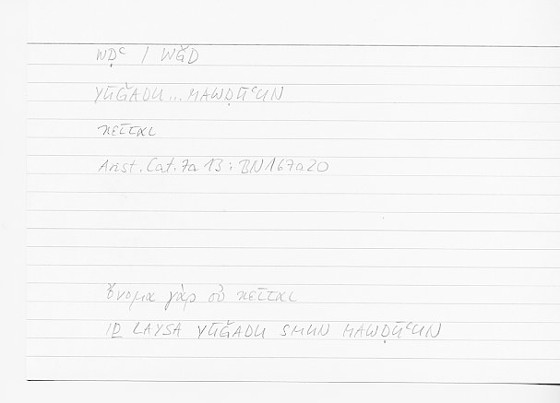 WḌʿ / WǦD
YŪǦADU... MAWḌŪʿUN
κεῖται
Arist. Cat. 7a 13 : BN167a20
ὄνομα γὰρ οὐ κεῖται
IḎ LAYSA YŪǦADU SMUN MAWḌŪʿUN